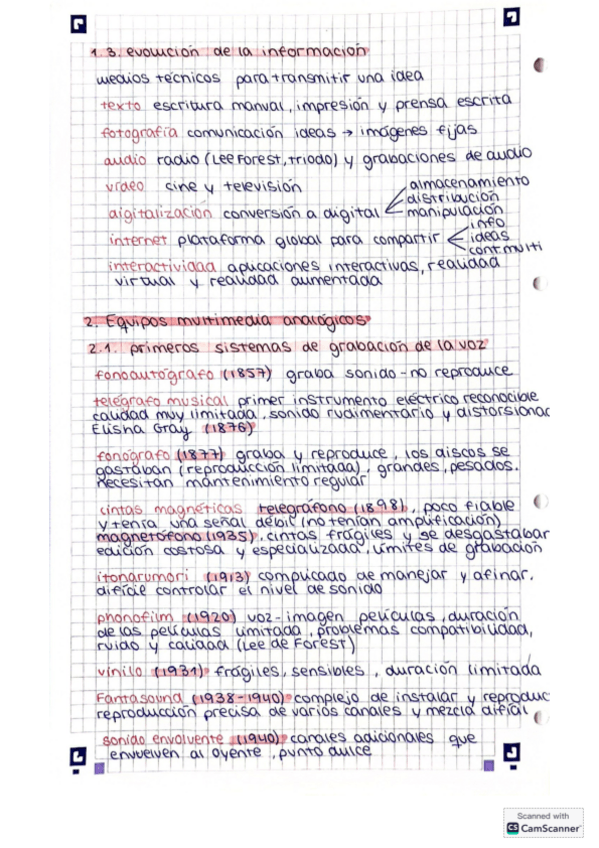 1.3. evolución de la información
medios técnicos para transmitir una idea
texto escritura manual, impresión y prensa escrita
fotografía comunicación ideas → imágenes fijas
audio radio (Lee Forest, triodo) y grabaciones de audio
video cine y televisión
digitalización conversión a digital almacenamiento
distribución
manipulación
internet plataforma global para compartir info
ideas
cont.multi
interactividad aplicaciones interactivas, realidad
virtual y realidad aumentada
2. Equipos multimedia analógicos
2.1. primeros sistemas de grabación de la voz
fonoautógrafo (1857) graba sonido - no reproduce
telégrafo musical primer instrumento eléctrico reconocible
calidad muy limitada, sonido rudimentario y distorsionar
Elisha Gray (1876)
fonógrafo (1877) graba y reproduce, los discos se
gastaban (reproducción limitada), grandes, pesados.
necesitan mantenimiento regular
cintas magnéticas telegráfono (1898), poco fiable
y tenía una señal débil (no tenían amplificación)
magnetófono (1935), cintas frágiles y se desgastabar
edición costosa y especializada, límites de grabación
itonarumori (1913) complicado de manejar y afinar,
difícil controlar el nivel de sonido
phonofilm (1920) voz-imagen películas, duración
de las películas limitada, problemas compatibilidad,
ruido y calidad (Lee de Forest)
vinilo (1931) frágiles, sensibles, duración limitada
Fantasound (1938-1940) complejo de instalar y reproduc
reproducción precisa de varios canales y mezcla difícil
sonido envolvente (1940) canales adicionales que
envuelven al oyente, punto dulce
Scanned with
CS CamScanner